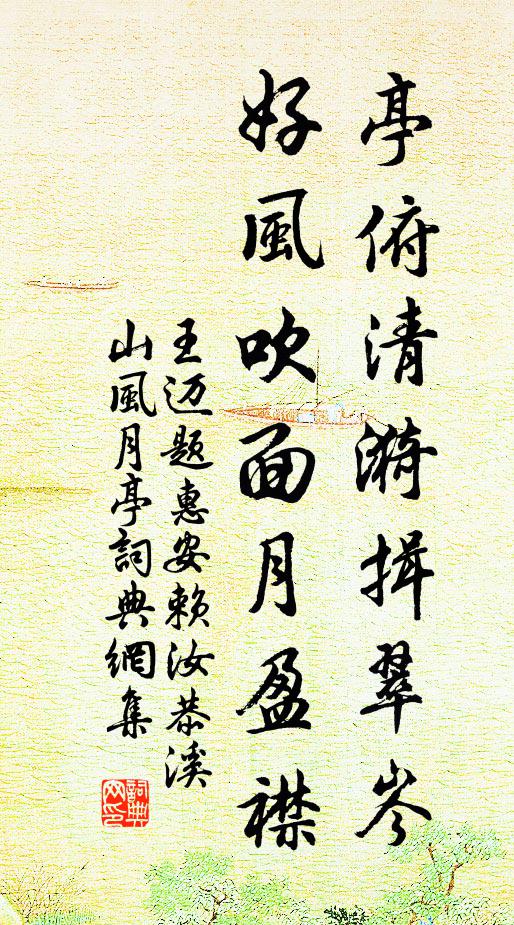 亭俯清漪揖翠岑
好風吹面月盈襟
王迈题惠安赖汝恭溪
山風月亭詞典網集
詞典網印